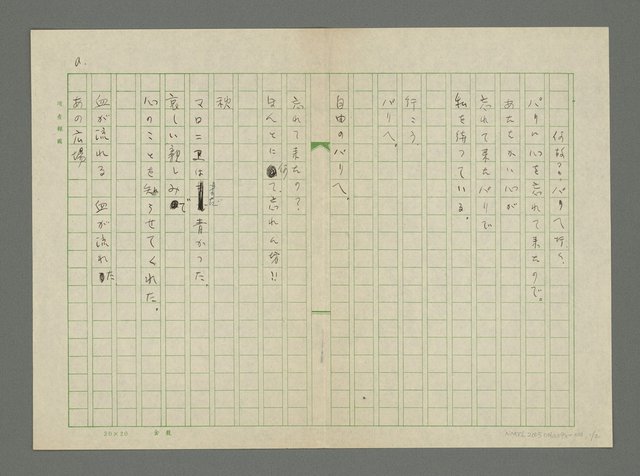 何故？パリへ行く
パリに心を忘れて来たので。
あたたかい心が
忘れて来たパリで
私を待っている。
行こう、
パリへ。
自由のパリへ。
忘れて来たの？
ほんとに何て、忘れん坊!!
秋
マロニエはまだ青かった。
哀しい親しみで
心のことを知らせてくれた。
血が流れる 血が流れた
あの広場
a.
20×20